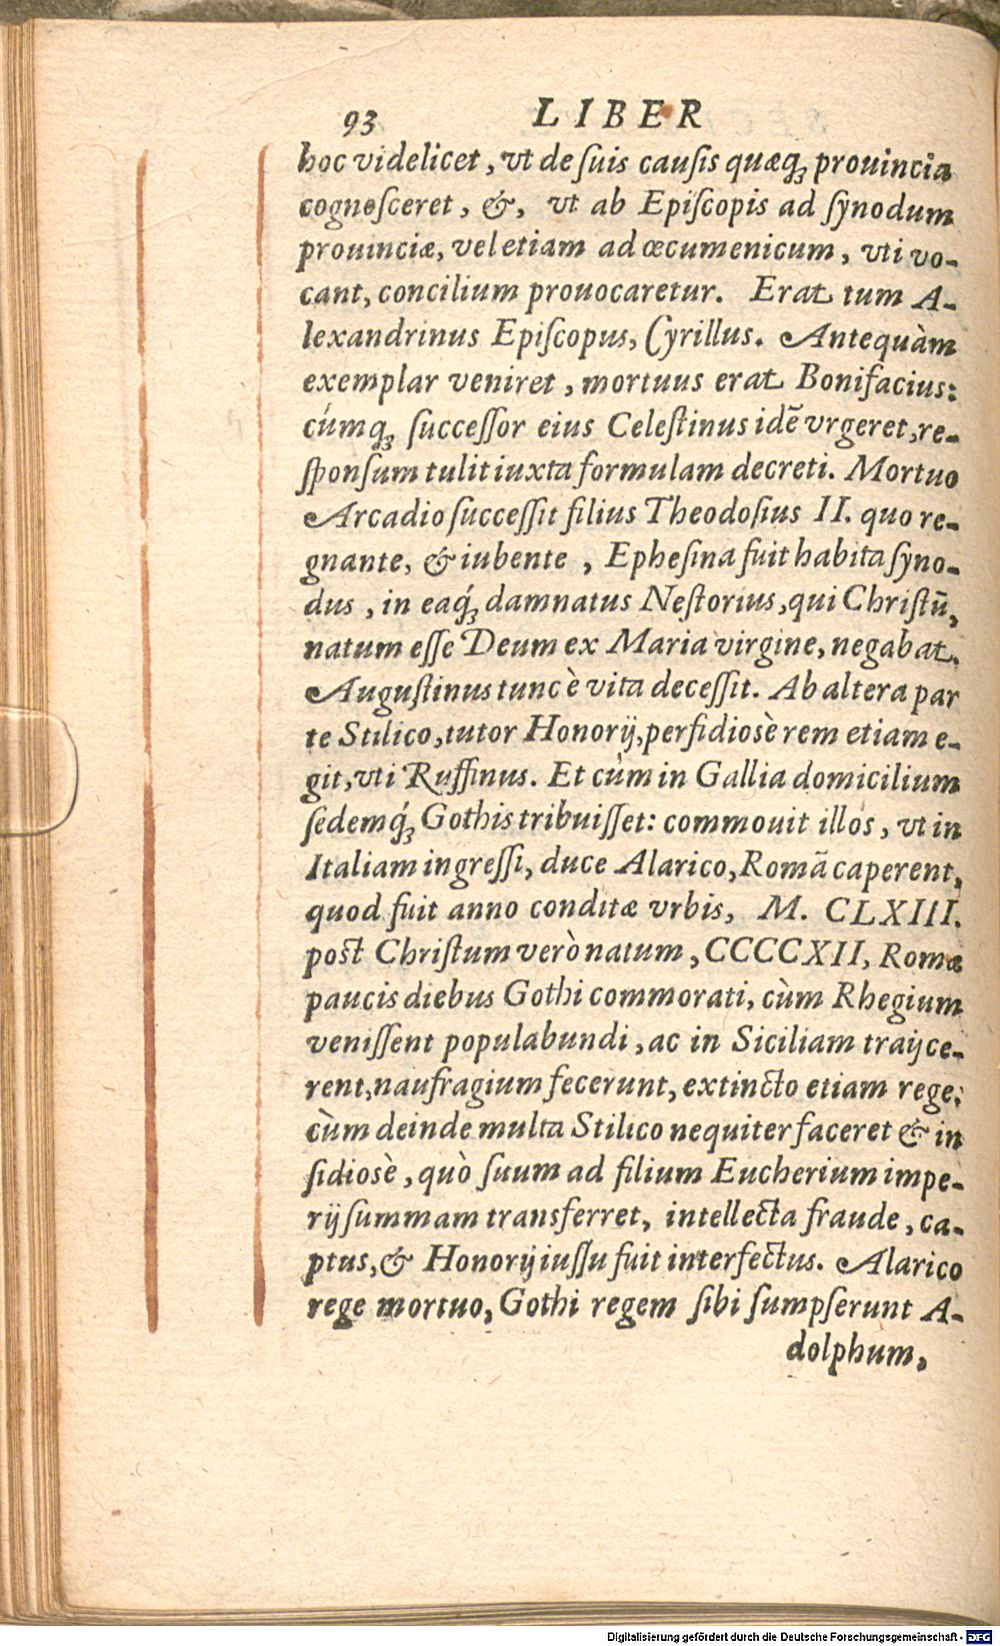 93 LIBER
hoc videlicet, vt de ſuis cauſis quæq; prouincia
cognoſceret, &, vt ab Epiſcopis ad ſynodum
prouinciæ, vel etiam ad œcumenicum, vti vo-
cant, concilium prouocaretur. Erat tum A-
lexandrinus Epiſcopus, Cyrillus. Antequàm
exemplar veniret, mortuus erat Bonifacius:
cúmq; ſucceſſor eius Celeſtinus idẽ vrgeret, re-
ſponſum tulit iuxta formulam decreti. Mortuo
Arcadio ſucceſſit filius Theodoſius II. quo re-
gnante, & iubente, Epheſina fuit habita ſyno-
dus, in eaq́; damnatus Neſtorius, qui Chriſtũ,
natum eſſe Deum ex Maria virgine, negabat.
Auguſtinus tunc è vita deceſſit. Ab altera par
te Stilico, tutor Honorij, perfidiosè rem etiam e-
git, vti Ruffinus. Et cùm in Gallia domicilium
ſedemq́; Gothis tribuiſſet: commouit illos, vt in
Italiam ingreſſi, duce Alarico, Romã caperent,
quod fuit anno conditæ vrbis, M. CLXIII.
poſt Chriſtum verò natum, CCCCXII, Romæ
paucis diebus Gothi commorati, cùm Rhegium
veniſſent populabundi, ac in Siciliam traijce-
rent, naufragium fecerunt, extincto etiam rege:
cùm deinde multa Stilico nequiter faceret & in
ſidiosè, quò ſuum ad filium Eucherium impe-
rij ſummam transferret, intellecta fraude, ca-
ptus, & Honorij iuſſu fuit interfectus. Alarico
rege mortuo, Gothi regem ſibi ſumpſerunt A-
dolphum,
Digitalisierung gefördert durch die Deutsche Forschungsgemeinschaft - DFG